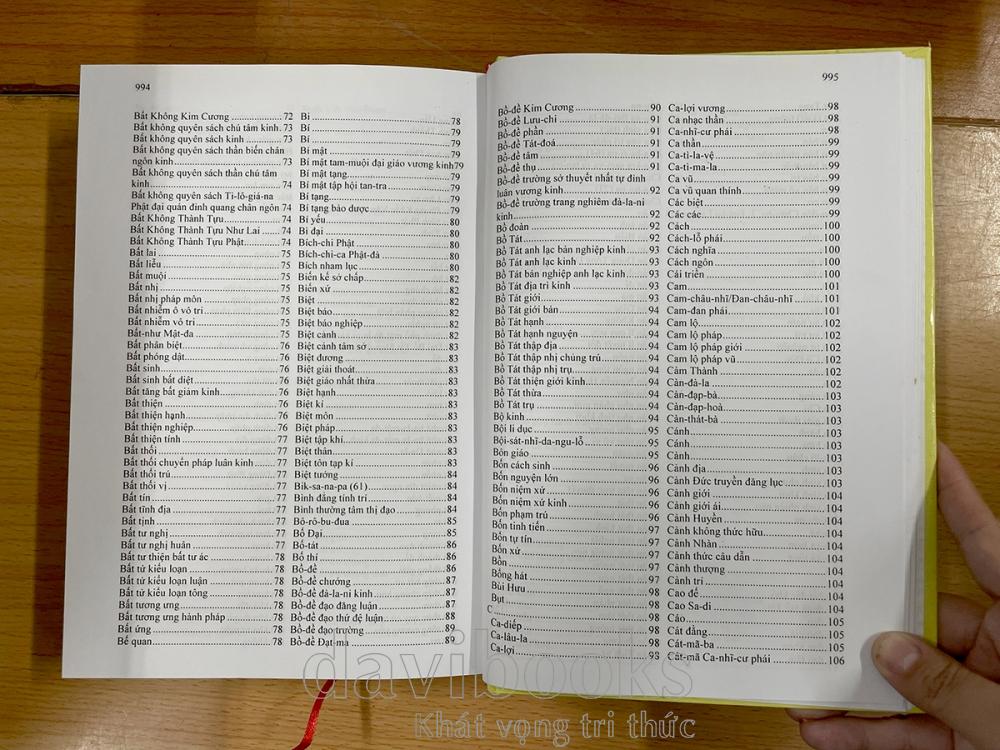 994
Bất Không Kim Cương 72
Bất không quyên sách chú tâm kinh. 73
Bất không quyên sách kinh 73
Bất không quyên sách thần biến chân
ngôn kinh 73
Bất không quyên sách thần chú tâm
kinh 74
Bất không quyên sách Tì-lô-giá-na
Phật đại quán đỉnh quang chân ngôn 74
Bất Không Thành Tựu 74
Bất Không Thành Tựu Như Lai 74
Bất Không Thành Tựu Phật 74
Bất lai 75
Bất liễu 75
Bất muội 75
Bất nhị 75
Bất nhị pháp môn 75
Bất nhiễm ô vô tri 75
Bất nhiễm vô tri 75
Bất-như Mật-đa 75
Bất phân biệt 76
Bất phóng dật 76
Bất sinh 76
Bất sinh bất diệt 76
Bất tăng bất giảm kinh 76
Bất thiện 76
Bất thiện hạnh 76
Bất thiện nghiệp 76
Bất thiện tính 77
Bất thối 77
Bất thối chuyển pháp luân kinh 77
Bất thối trú 77
Bất thối vị 77
Bất tín 77
Bất tĩnh địa 77
Bất tịnh 77
Bất tư nghị 77
Bất tư nghị huân 77
Bất tư thiện bất tư ác 78
Bất tử kiểu loạn 78
Bất tử kiểu loạn luận 78
Bất tử kiểu loạn tông 78
Bất tương ưng 78
Bất tương ưng hành pháp 78
Bất ứng 78
Bế quan 78
Bi 78
Bí 79
Bỉ 79
Bí mật 79
Bí mật tam-muội đại giáo vương kinh 79
Bí mật tạng 79
Bí mật tập hội tan-tra 79
Bí tạng 79
Bí tạng bảo dược 79
Bí yếu 80
Bi đại 80
Bích-chi Phật 80
Bích-chi-ca Phật-đà 80
Bích nham lục 80
Biến kế sở chấp 82
Biến xứ 82
Biệt 82
Biệt báo 82
Biệt báo nghiệp 82
Biệt cảnh 82
Biệt cảnh tâm sở 83
Biệt đương 83
Biệt giải thoát 83
Biệt giáo nhất thừa 83
Biệt hạnh 83
Biệt kí 83
Biệt môn 83
Biệt pháp 83
Biệt tập khí 83
Biệt thân 83
Biệt tôn tạp kí 83
Biệt tướng 84
Bik-sa-na-pa (61) 84
Bình đẳng tính trí 84
Bình thường tâm thị đạo 84
Bô-rô-bu-đua 85
Bố Đại 85
Bố-tát 86
Bố thí 86
Bồ-đề 86
Bồ-đề chướng 87
Bồ-đề đà-la-ni kinh 87
Bồ-đề đạo đăng luận 87
Bồ-đề đạo thứ đệ luận 88
Bồ-đề đạo trường 89
Bồ-đề Đạt-ma 89
995
Bồ-đề Kim Cương 90
Bồ-đề Lưu-chi 91
Bồ-đề phần 91
Bồ-đề Tát-đoá 91
Bồ-đề tâm 91
Bồ-đề thụ 91
Bồ-đề trường sở thuyết nhất tự đỉnh
luân vương kinh 92
Bồ-đề trường trang nghiêm đà-la-ni
kinh 92
Bồ đoàn 92
Bồ Tát 92
Bồ Tát anh lạc bản nghiệp kinh 93
Bồ Tát anh lạc kinh 93
Bồ Tát bản nghiệp anh lạc kinh 93
Bồ Tát địa trì kinh 93
Bồ Tát giới 93
Bồ Tát giới bản 93
Bồ Tát hạnh 94
Bồ Tát hạnh nguyện 94
Bồ Tát thập địa 94
Bồ Tát thập nhị chủng trú 94
Bồ Tát thập nhị trụ 94
Bồ Tát thiện giới kinh 94
Bồ Tát thừa 94
Bồ Tát trụ 94
Bộ kinh 94
Bội li dục 95
Bội-sát-nhĩ-da-ngu-lỗ 95
Bôn giáo 95
Bổn cách sinh 96
Bổn nguyện lớn 96
Bốn niệm xứ 96
Bốn niệm xứ kinh 96
Bốn phạm trú 96
Bốn tinh tiến 96
Bốn tự tín 97
Bốn xứ 97
Bồn 97
Bổng hát 97
Bùi Hưu 98
Bụt 98
C 98
Ca-diếp 98
Ca-lâu-la 98
Ca-lợi 98
Ca-lợi vương 98
Ca nhạc thần 98
Ca-nhĩ-cư phái 98
Ca thần 99
Ca-ti-la-vệ 99
Ca-ti-ma-la 99
Ca vũ 99
Ca vũ quan thính 99
Các biệt 99
Các các 99
Cách 100
Cách-lỗ phái 100
Cách nghĩa 100
Cách ngôn 100
Cái triền 100
Cam 101
Cam-châu-nhĩ/Đan-châu-nhĩ 101
Cam-đan phái 101
Cam lộ 102
Cam lộ pháp 102
Cam lộ pháp giới 102
Cam lộ pháp vũ 102
Cảm Thành 102
Càn-đà-la 102
Càn-đạp-bà 103
Càn-đạp-hoà 103
Càn-thát-bà 103
Cánh 103
Cảnh 103
Cảnh địa 103
Cảnh Đức truyền đăng lục 103
Cảnh giới 104
Cảnh giới ái 104
Cảnh Huyền 104
Cảnh không thức hữu 104
Cảnh Nhàn 104
Cảnh thức câu dẫn 104
Cảnh thượng 104
Cảnh trí 104
Cao đế 104
Cao Sa-di 104
Cáo 105
Cát đằng 105
Cát-mã-ba 105
Cát-mã Ca-nhĩ-cư phái 106
davibooks
Khát vọng tri thức